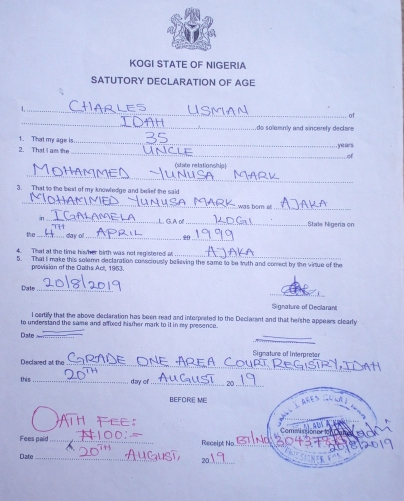 KOGI STATE OF NIGERIA
SATUTORY DECLARATION OF AGE
I, CHARLES USMAN of
IDAH do solemnly and sincerely declare
1. That my age is 35 years
2. That I am the UNCLE of
(state relationship)
MOHAMMED YUNUSA MARK
3. That to the best of my knowledge and belief the said
MOHAMMED YUNUSA MARK was born at AJAKA
in IGALAMELA L.G.A of KOGI State Nigeria on
the 4TH day of APRIL 1999
4. That at the time his/her birth was not registered at AJAKA
5. That I make this solemn declaration consciously believing the same to be truth and correct by the virtue of the
provision of the Oaths Act, 1963.
Date 20/8/2019
Signature of Declarant
I certify that the above declaration has been read and interpreted to the Declarant and that he/she appears clearly
to understand the same and affixed his/her mark to it in my presence.
Date
Signature of Interpreter
Declared at the GRADE ONE AREA COURT REGISTRY, IDAH
this 20TH day of AUGUST 2019
BEFORE ME
OATH FEE:
Fees paid ₦100:=
Commissioner for
Receipt No
Date 20TH AUGUST, 2019